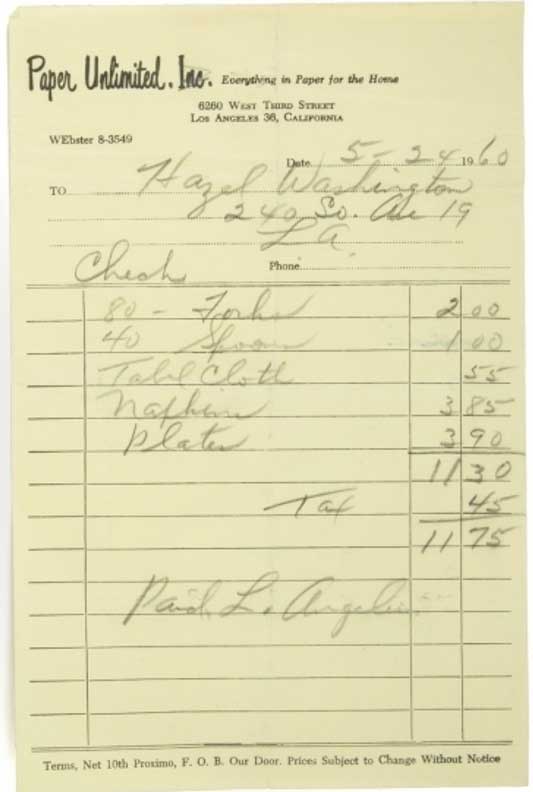 Paper Unlimited, Inc. Everything in Paper for the Home
6260 West Third Street
Los Angeles 36, California
WEbster 8-3549
Date 5-24 1960
TO Hazel Washington
240 So. Ave 19
LA
Check Phone
80 - Forks 2 00
40 Spoons 1 00
Tabl Cloth 55
Napkins 3 85
Plates 3 90
11 30
Tax 45
11 75
Paid L. Angeles
Terms, Net 10th Proximo, F. O. B. Our Door. Prices Subject to Change Without Notice